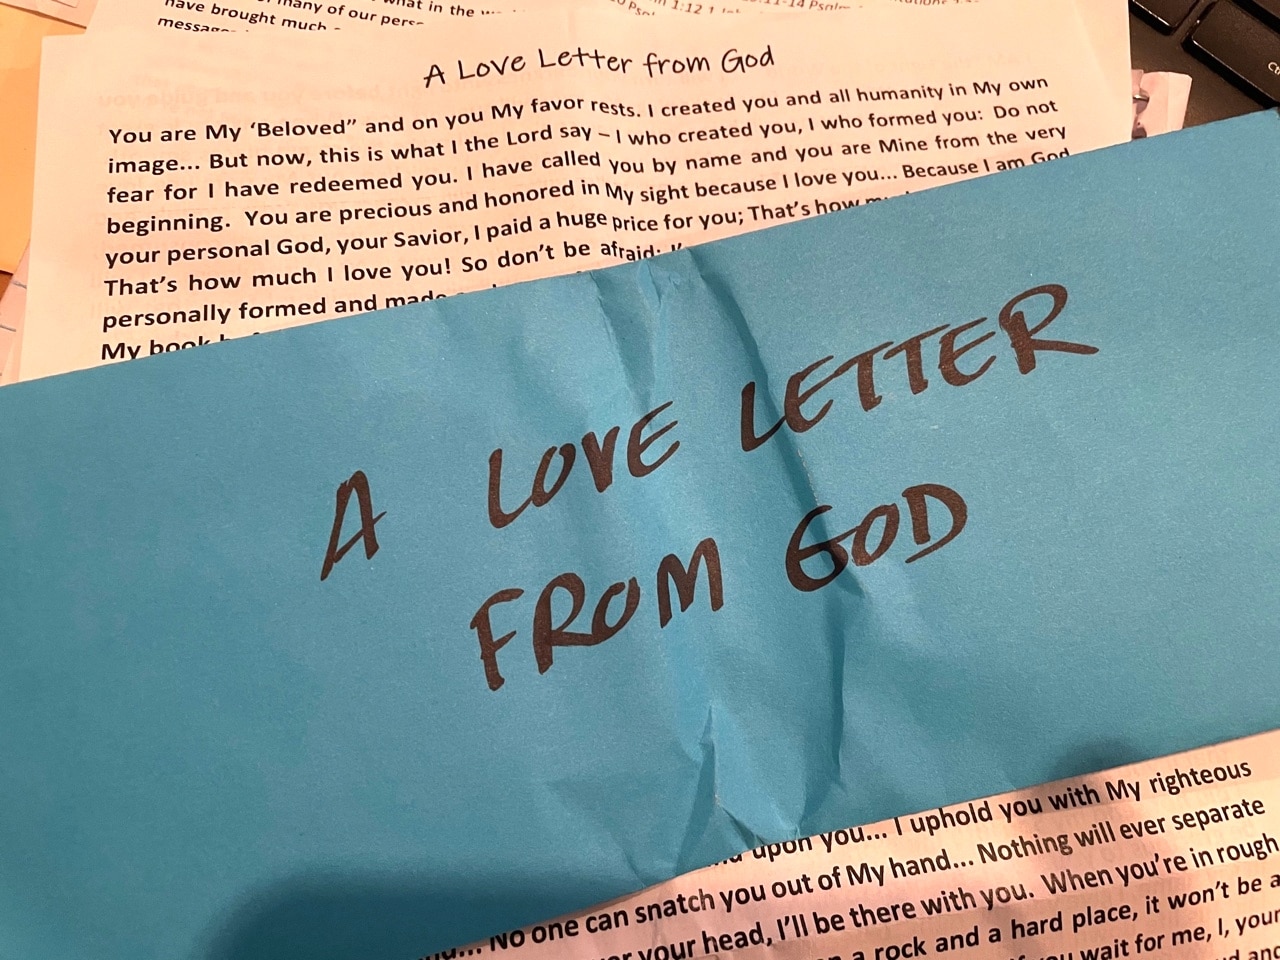 what in the
many of our
have brought much
1:12
11-14 Psalm
A Love Letter from God
You are My ‘Beloved” and on you My favor rests. I created you and all humanity in My own
image... But now, this is what I the Lord say – I who created you, I who formed you: Do not
fear for I have redeemed you. I have called you by name and you are Mine from the very
beginning. You are precious and honored in My sight because I love you... Because I am God
your personal God, your Savior, I paid a huge price for you; That’s how
That’s how much I love you! So don’t be afraid:
personally formed and made
My book
A LOVE LETTER
FROM GOD
upon you... I uphold you with My righteous
No one can snatch you out of My hand... Nothing will ever separate
your head, I’ll be there with you. When you’re in rough
a rock and a hard place, it won’t be a
wait for me, I, your